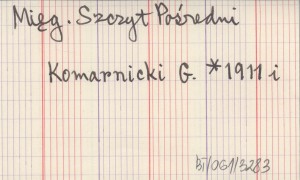 Mięg. Szczyt Pośredni
Komarnicki G. * 1911 i
BT/061/3283